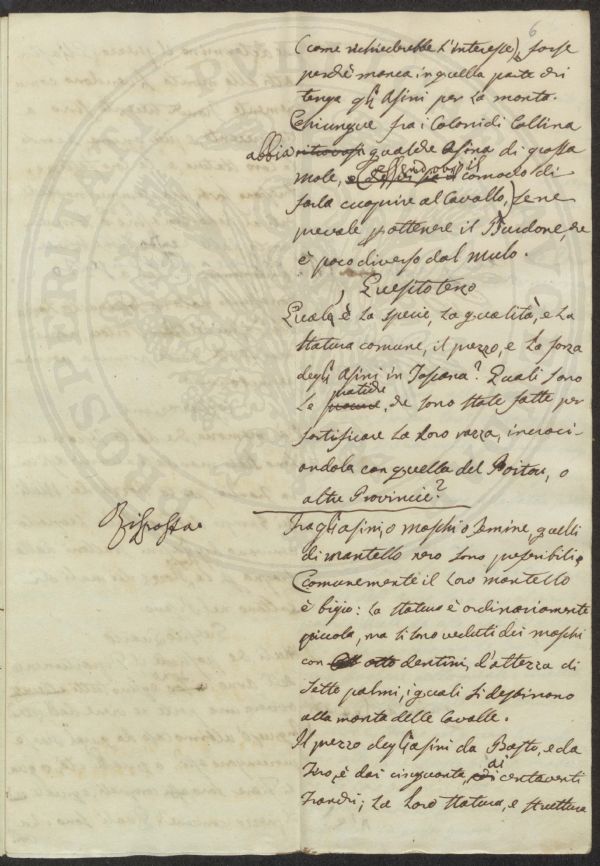 6
(come richiederebbe l'interesse), forse
perchè manca in quella parte chi
tenga gli Asini per la monta.
Chiunque fra i Coloni di Collina
abbia ritrovasi qualche Asina di grossa
mole, (essendovi il comodo di
farla cuoprire al Cavallo,) se ne
prevale p. ottenere il Burdone, che
è poco diverso dal mulo.
Quesito terzo
Quale è la specie, la qualità, e la
statura comune, il prezzo, e la forza
degli Asini in Toscana? Quali sono
le pratiche, che sono state fatte per
fortificare la loro razza, incroci-
andola con quella del Poitou, o
altre Provincie?
Risposta
Fra gli Asini, o maschi o femine, quelli
di mantello nero sono preferibili.
Comunemente il loro mantello
è bigio: la statura è ordinariamente
piccola, ma si sono veduti dei maschi
con otto dentini, d'altezza di
sette palmi, i quali si destinono
alla monta delle Cavalle.
Il prezzo degli Asini da Basto, e da
Tiro, è dai cinquanta, ai centoventi
Franchi; la loro statura, e struttura